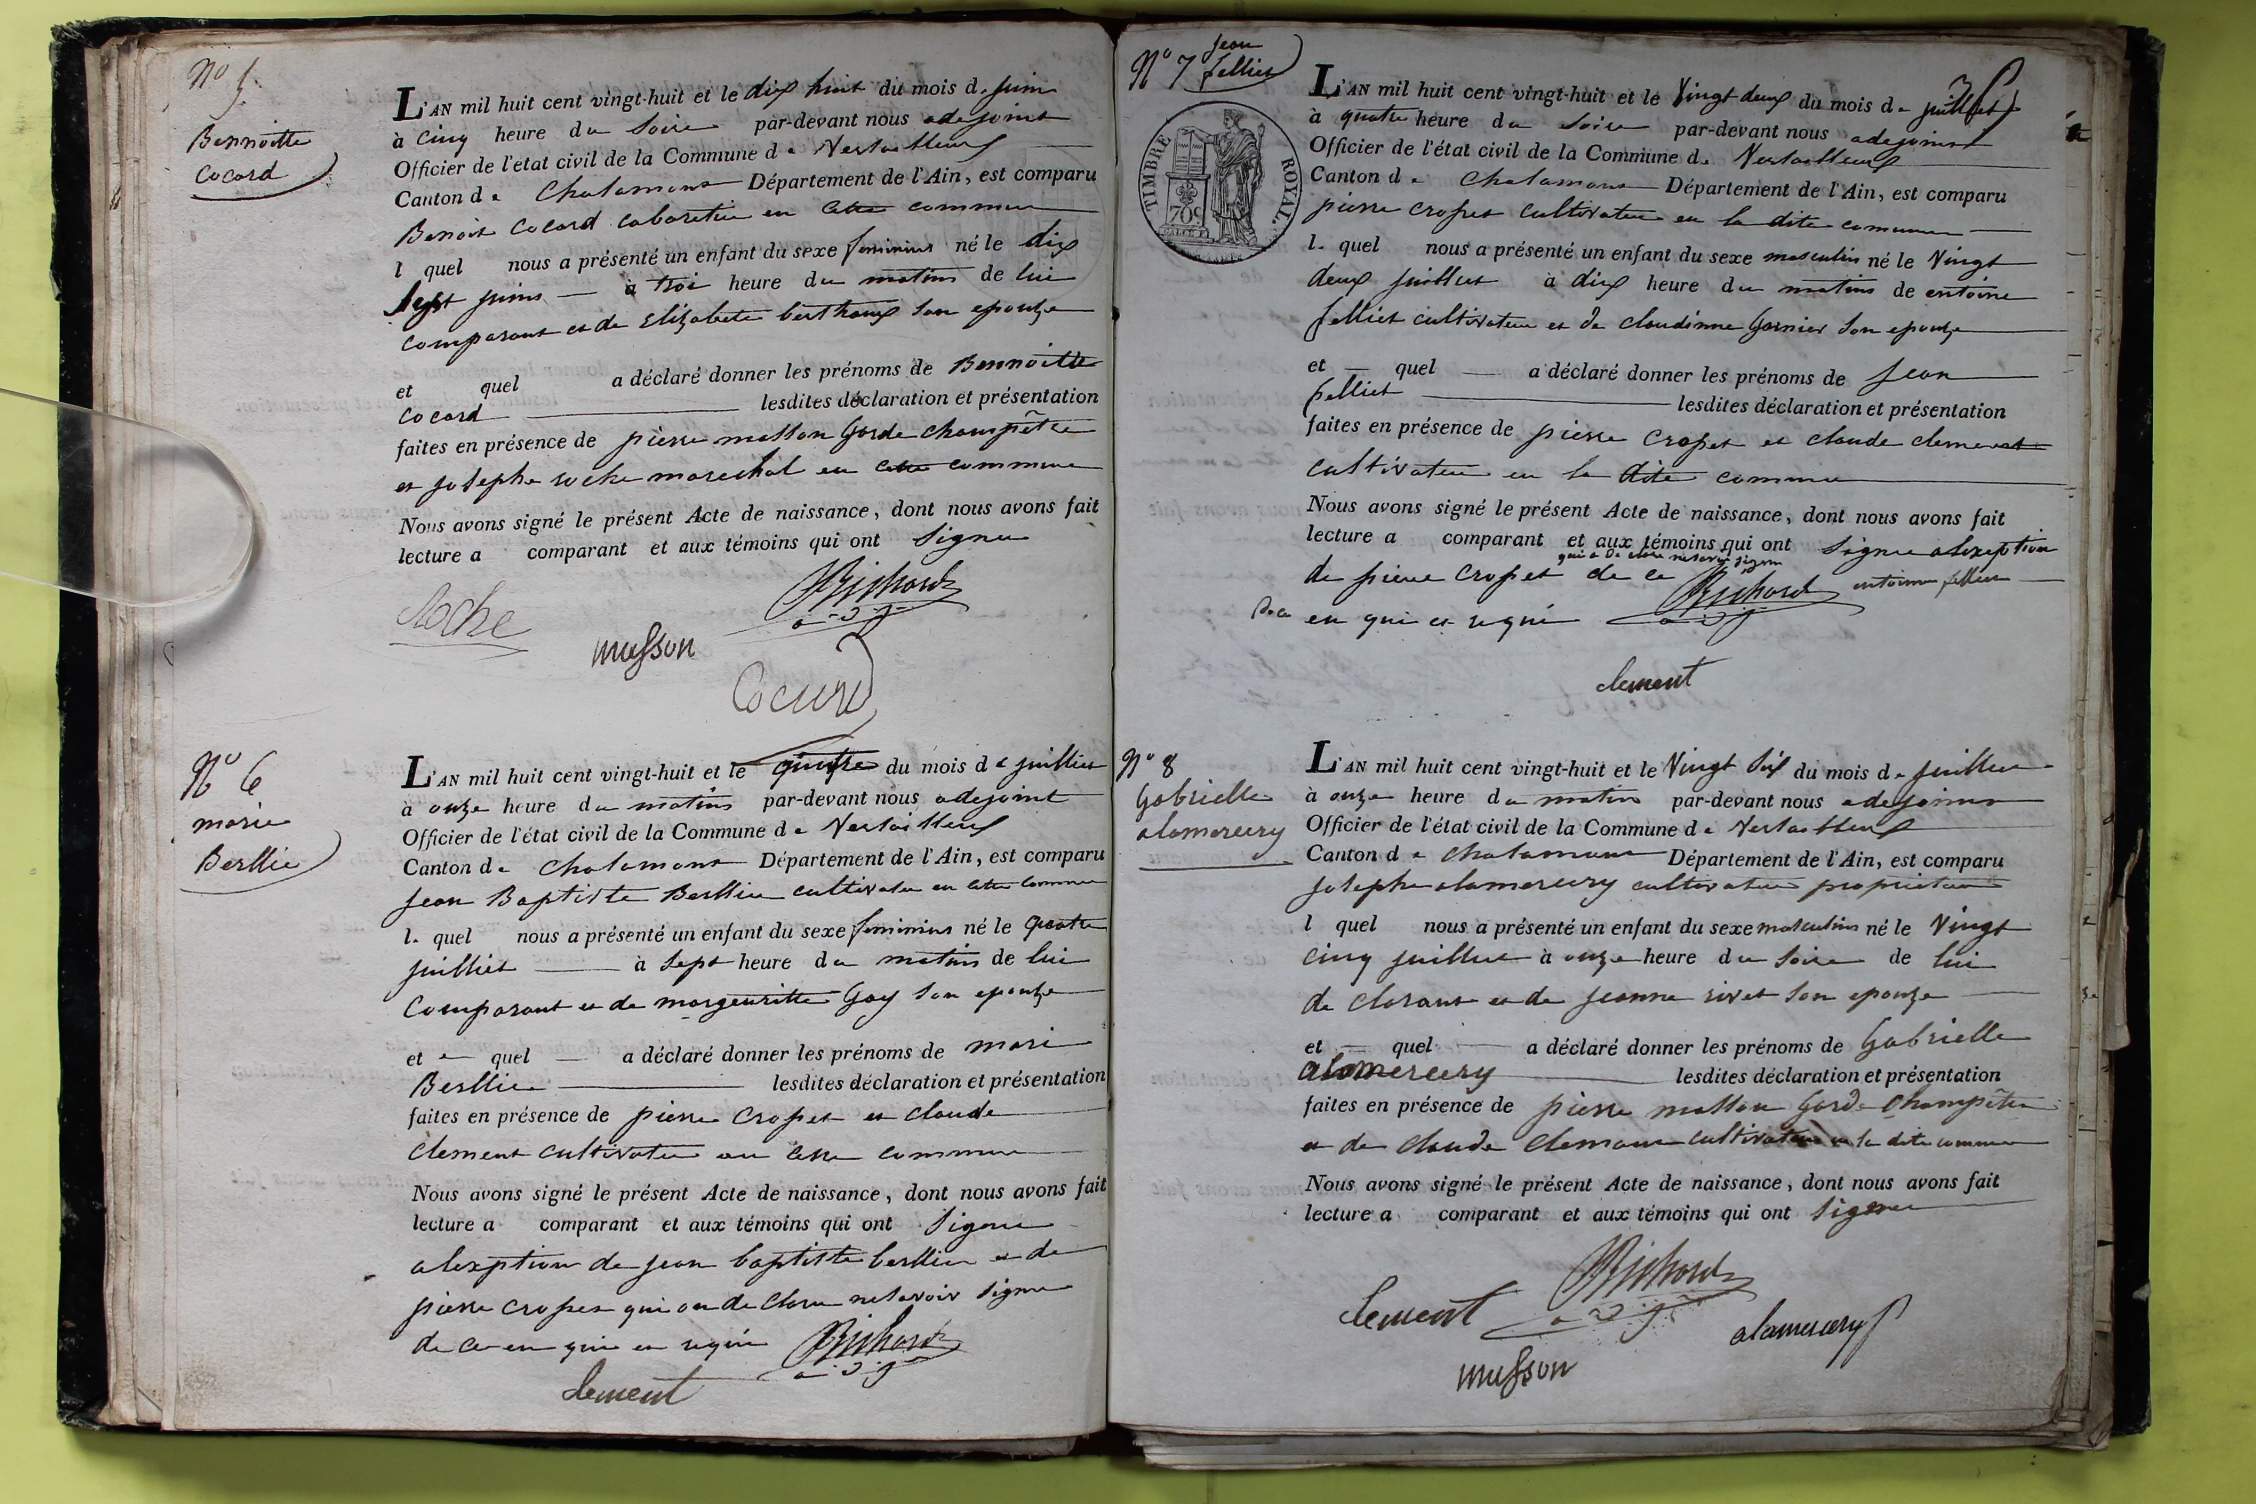 No 5
Bennoitte
Cocard
L'AN mil huit cent vingt-huit et le dix huit du mois de juin
à cinq heure du soire par-devant nous adejoint
Officier de l'état civil de la Commune de Versailleux
Canton de Chalamont Département de l'Ain, est comparu
Benoit Cocard cabaretie en cette commune
l quel nous a présenté un enfant du sexe feminins né le dix
sept juins à troi heure du matins de lui
comparant et de Elizabette berthoux son epouze
et quel a déclaré donner les prénoms de Bennoitte
Cocard lesdites déclaration et présentation
faites en présence de pierre masson garde champêtre
et josephe roche marechal en cette commune
Nous avons signé le présent Acte de naissance, dont nous avons fait
lecture a comparant et aux témoins qui ont signe
Richard
Roche
a d j
musson
Cocard
No 6
marie
Berllie
L'AN mil huit cent vingt-huit et le quatre du mois de juilliet
à onze heure du matins par-devant nous adejoint
Officier de l'état civil de la Commune de Versailleux
Canton de Chalamont Département de l'Ain, est comparu
jean Baptiste Berllie cultivateu en cette commune
le quel nous a présenté un enfant du sexe feminins né le quatre
juilliet à sept heure du matins de lui
comparant et de margeuritte Gay son epouze
et quel a déclaré donner les prénoms de mari
Berllie lesdites déclaration et présentation
faites en présence de pierre cropet et claude
clement cultivateu en cette commune
Nous avons signé le présent Acte de naissance, dont nous avons fait
lecture a comparant et aux témoins qui ont signe
alexption de jean baptiste berllie et de
pierre cropet qui on de clare nesavoir signe
de ce en qui et requi Richard
a d j
clement
No 7 jean
pelliet
TIMBRE ROYAL
70c
L'AN mil huit cent vingt-huit et le vingt deux du mois de juilliet
à quatre heure du soire par-devant nous adejoint
Officier de l'état civil de la Commune de Versailleux
Canton de Chalamont Département de l'Ain, est comparu
pierre cropet cultivateu en la dite commune
le quel nous a présenté un enfant du sexe masculin né le vingt
deux juilliet à dix heure du matins de entoine
pelliet cultivateu et de claudinne Garnier son epouze
et quel a déclaré donner les prénoms de jean
pelliet lesdites déclaration et présentation
faites en présence de pierre cropet et claude clement
cultivateu en la dite commune
Nous avons signé le présent Acte de naissance, dont nous avons fait
lecture a comparant et aux témoins qui ont signe alexeption
qui a de clare nesavoi signe
de pierre cropet de ce Richard entoinne pelliet
en qui et requi a d j
clement
No 8
Gabrielle
alamercery
L'AN mil huit cent vingt-huit et le vingt six du mois de juilliet
à onze heure du matin par-devant nous adejoint
Officier de l'état civil de la Commune de Versailleux
Canton de chalamont Département de l'Ain, est comparu
josephe alamercery cultivateu proprietaire
l quel nous a présenté un enfant du sexe masculins né le vingt
cinq juilliet à onze heure du soire de lui
de clarant et de jeanne rivet son epouze
et quel a déclaré donner les prénoms de Gabrielle
alamercery lesdites déclaration et présentation
faites en présence de pierre masson Garde champêtre
et de claude clemant cultivateu en la dite commune
Nous avons signé le présent Acte de naissance, dont nous avons fait
lecture a comparant et aux témoins qui ont signe
Richard
clement a d j
alamercery
musson